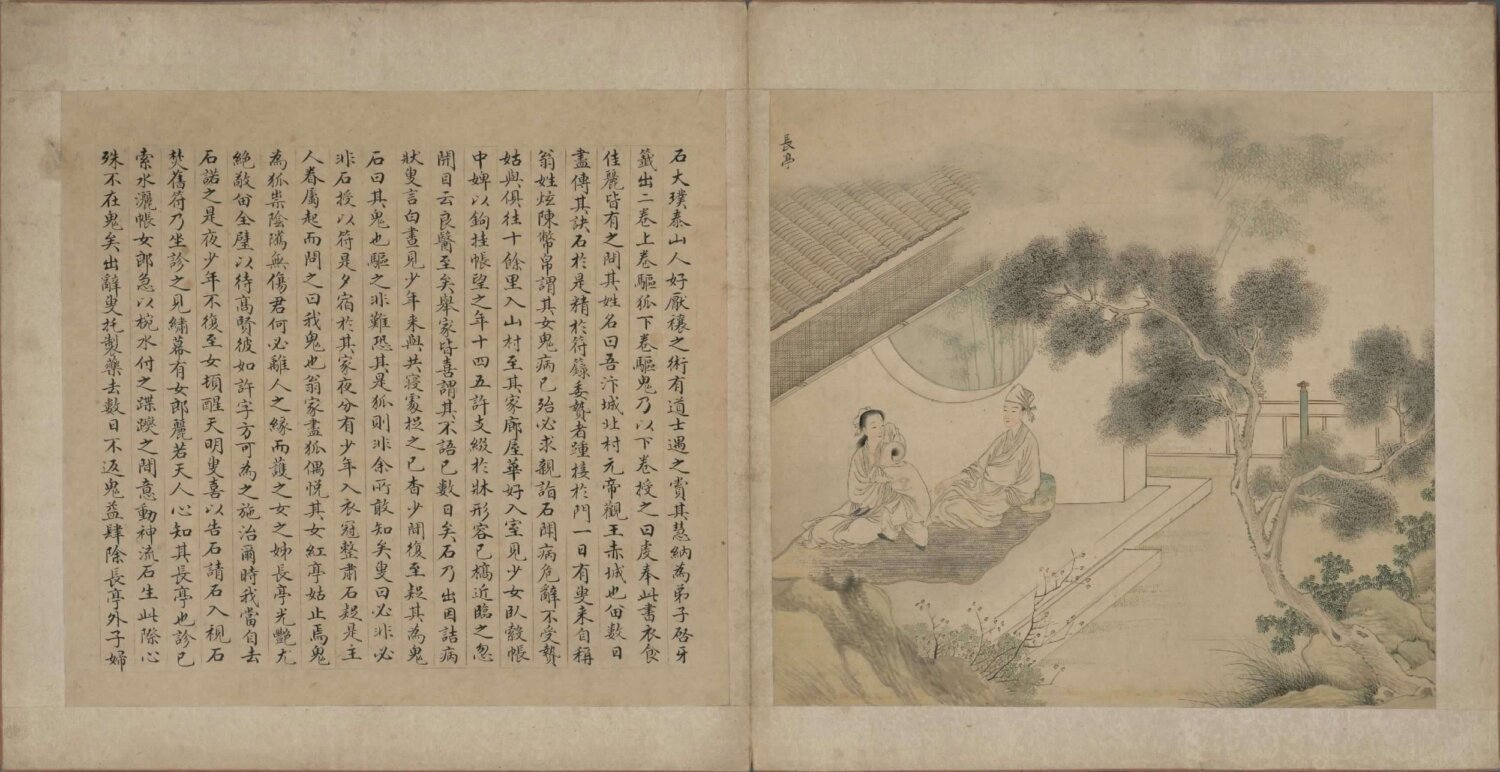 長亭
石大璞泰山人好厭禳之術有道士遇之賞其慧納為弟子啟牙
籤出二卷上卷驅狐下卷驅鬼乃以下卷授之曰虔奉此書衣食
佳麗皆有之問其姓名曰吾汴城北村元帝觀王赤城也留數日
盡傳其訣石於是精於符籙委贄者踵接於門一日有叟來自稱
翁姓炫陳幣帛謂其女鬼病已殆必求親詣石聞病危辭不受贄
姑與俱往十餘里入山村至其家廊屋華好入室見少女臥縠帳
中婢以鉤挂帳望之年十四五許支綴於牀形容已槁近臨之忽
開目云良醫至矣舉家皆喜謂其不語已數日矣石乃出因詰病
狀叟言白晝見少年来與共寢處捉之已杳少間復至疑其為鬼
石曰其鬼也驅之非難恐其是狐則非余所敢知矣叟曰必非必
非石授以符是夕宿於其家夜分有少年入衣冠整肅石疑是主
人眷屬起而問之曰我鬼也翁家盡狐偶悅其女紅亭姑止焉鬼
為狐祟陰隲無傷君何必離人之緣而護之女之姊長亭光艷尤
絶敬留全璧以待高賢彼如許字方可為之施治爾時我當自去
石諾之是夜少年不復至女頓醒天明叟喜以告石請石入視石
焚舊符乃坐診之見繡幕有女郎麗若天人心知其長亭也診已
索水灑帳女郎急以椀水付之蹀躞之間意動神流石生此際心
殊不在鬼矣出辭叟托製藥去數日不返鬼益肆除長亭外子婦